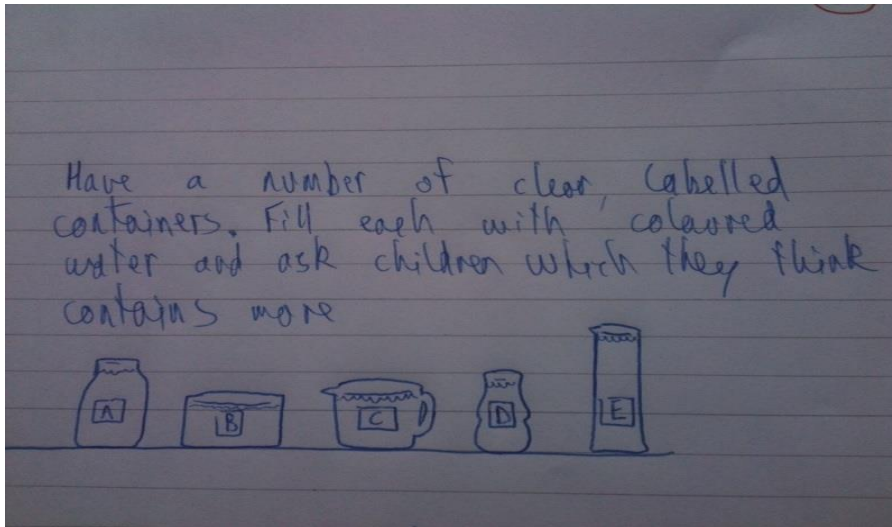 Have a number of clear, labelled
containers. Fill each with coloured
water and ask children which they think
contains more
A B C D E